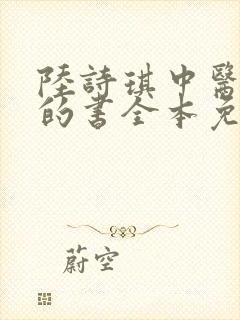 陸詩琪中醫
的書全本免
蔚空